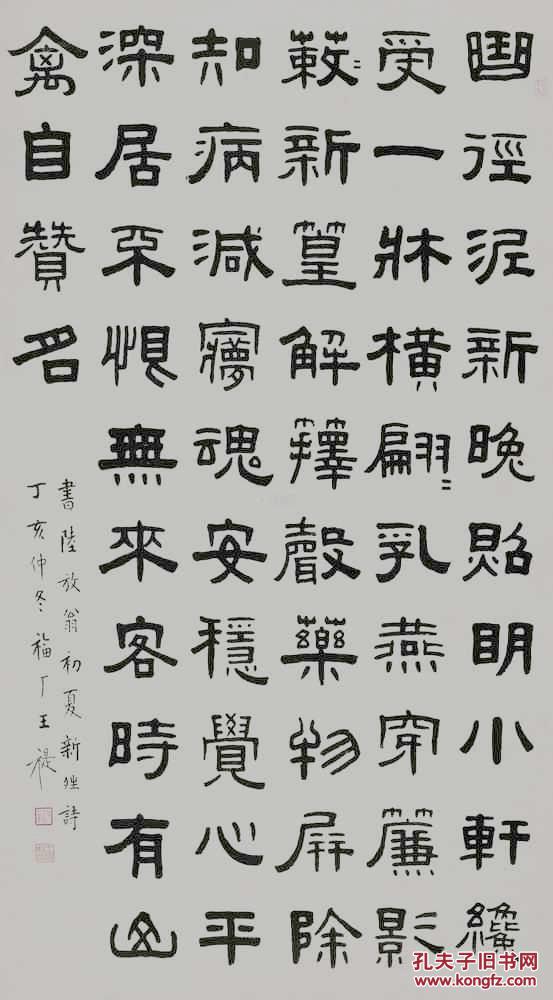 曲徑泥新晚照明小軒纔
受一牀橫翩〻乳燕穿簾影
蔌〻新篁解籜聲藥物屏除
知病減㝱魂安穩覺心平
深居不恨無來客時有山
禽自贊名
書陸放翁初夏新夝詩
丁亥仲冬福厂王禔
孔夫子旧书网
www.kongfz.com